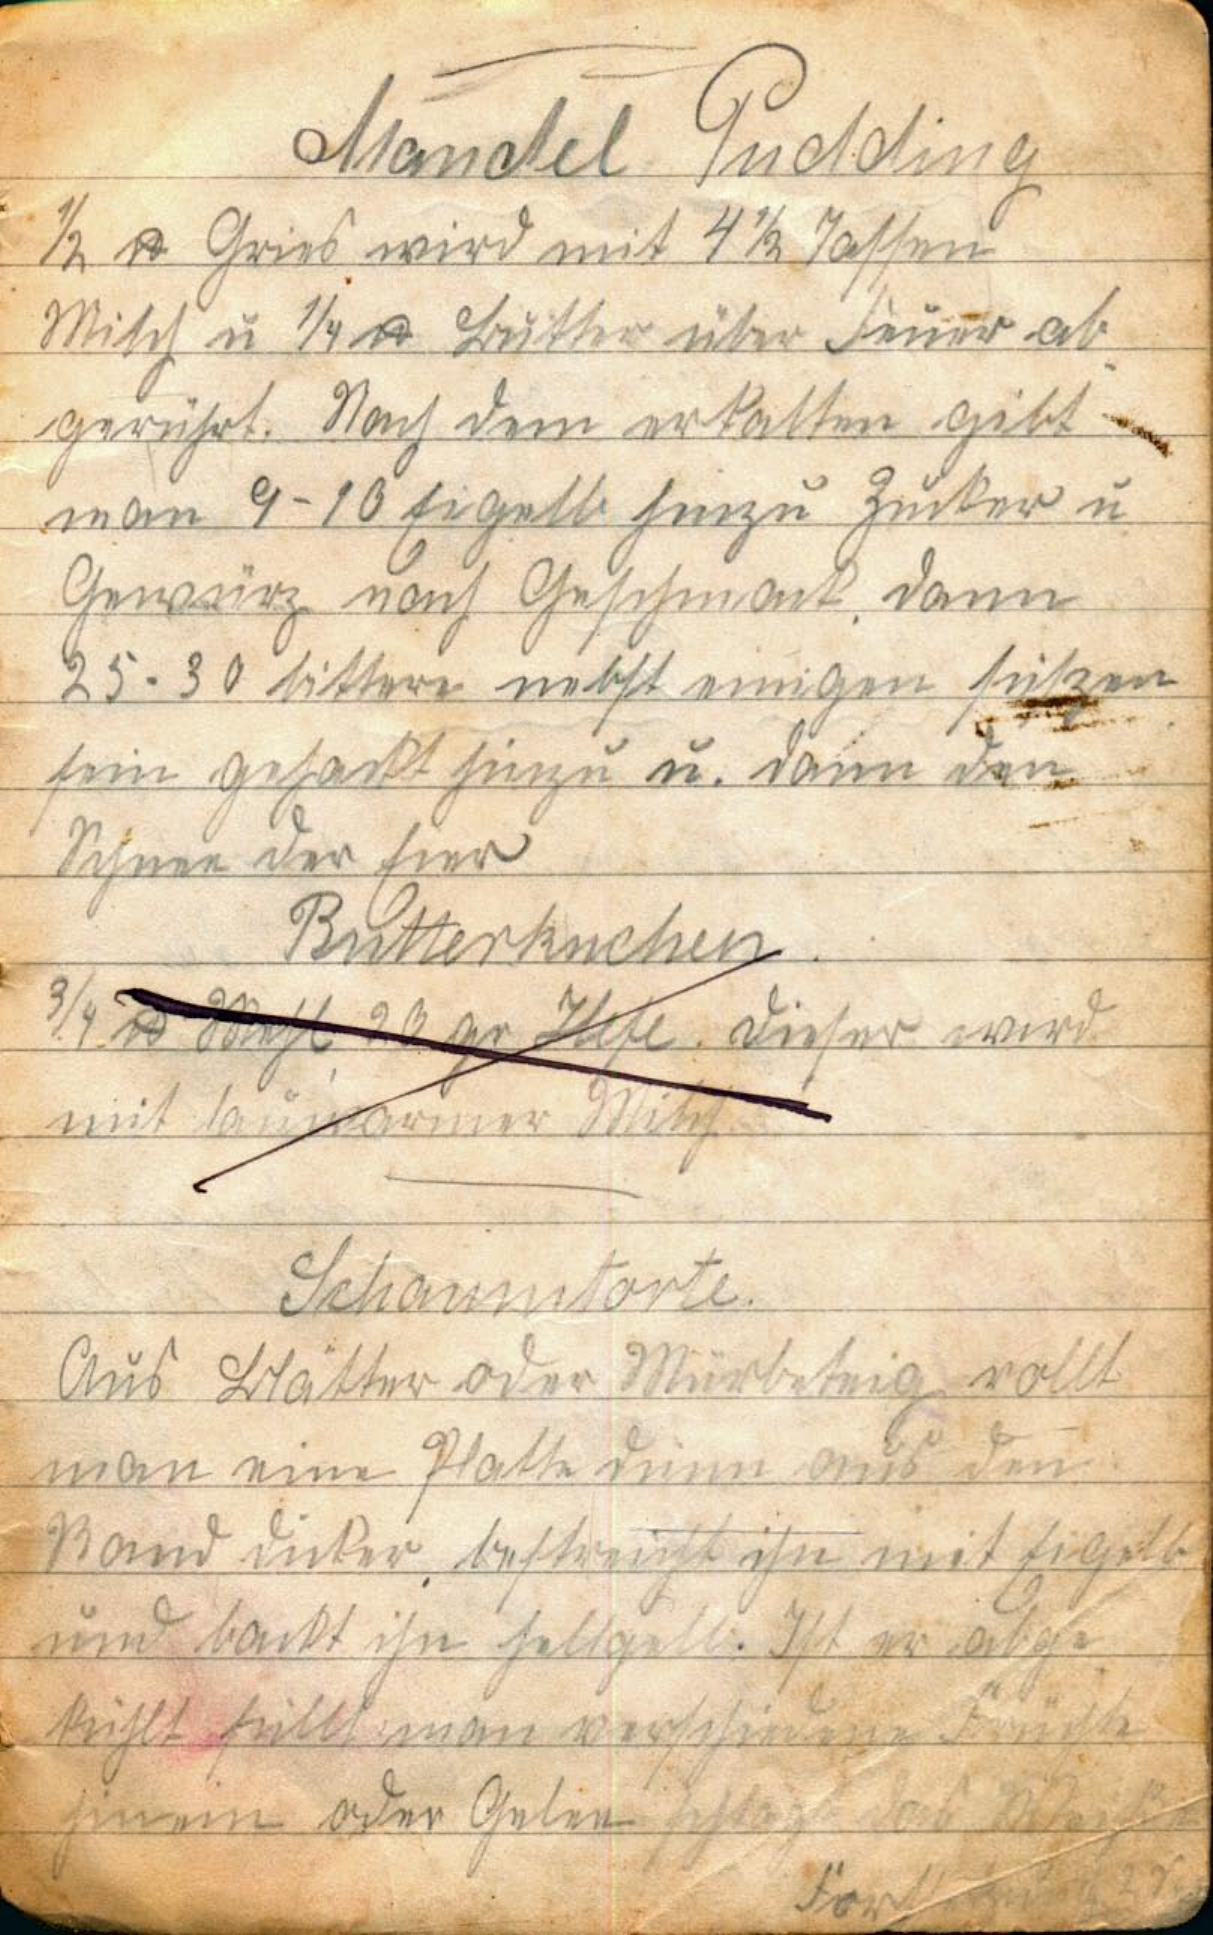 Mandel Pudding
1/2 ℔ Gries wird mit 4 1/2 Tassen
Milch u 1/4 ℔ Butter über Feuer ab
gerührt. Nach dem erkalten gibt
man 9-10 Eigelb hinzu Zucker u
Gewürz nach Geschmack, dann
25-30 bittere nebst einigen süßen
fein gehackt hinzu u. dann den
Schnee der Eier
Butterkuchen.
3/4 ℔ Mehl 20 gr Hefe. Dieser wird
mit lauwarmer Milch
Schaumtorte.
Aus Blätter oder Mürbeteig rollt
man eine Platte dünn aus den
Rand dicker, bestreicht ihn mit Eigelb
und backt ihn hellgelb. Ist er abge
kühlt füllt man verschiedene Früchte
hinein oder Gelee schlägt das